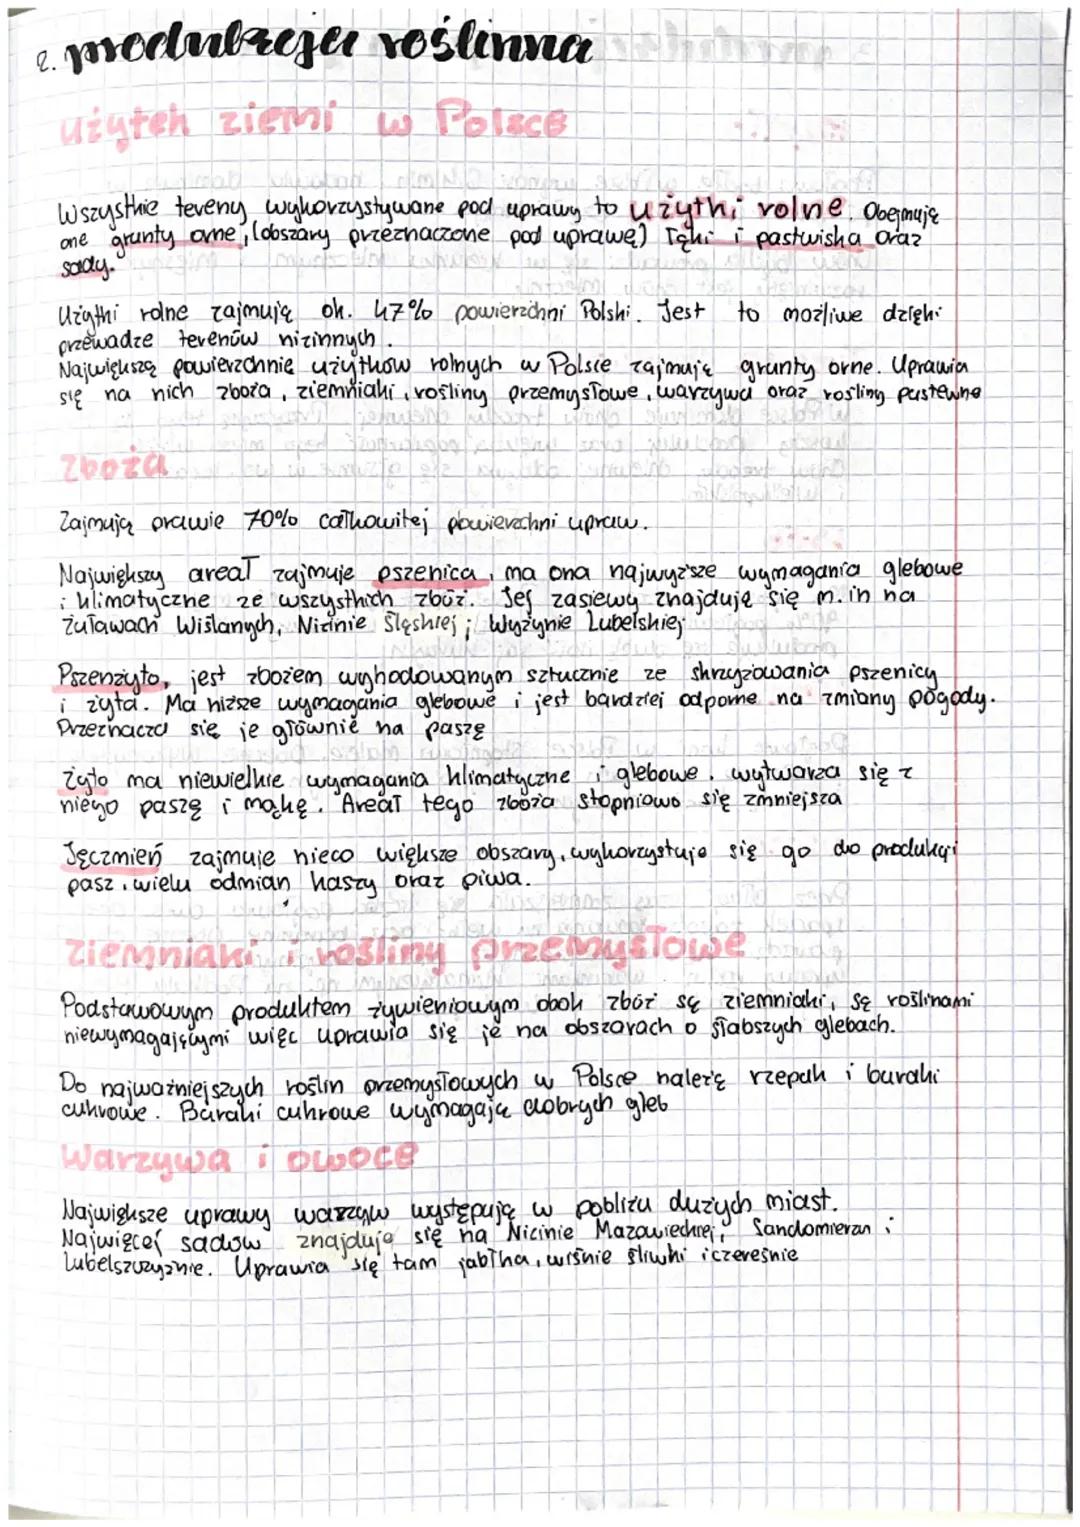 2. produkcja roślinna
użytek ziemi w Polsce
Wszystkie tereny wykorzystywane pod uprawy to użytki rolne. Obejmują
one grunty orne, (obszary przeznaczone pod uprawę) łąki i pastwiska oraz
sady.
Użytki rolne zajmują ok. 47% powierzchni Polski. Jest to możliwe dzięki
przewadze terenów nizinnych.
Największą powierzchnię użytków rolnych w Polsce zajmują grunty orne. Uprawia
się na nich zboża, ziemniaki, rośliny przemysłowe, warzywa oraz rośliny pastewne
Zboża
Zajmują prawie 70% całkowitej powierzchni upraw.
Największy areał zajmuje pszenica, ma ona najwyższe wymagania glebowe
i klimatyczne ze wszystkich zbóż. Jej zasiewy znajdują się m.in na
Żuławach Wiślanych, Nizinie Śląskiej i Wyżynie Lubelskiej
Pszenżyto, jest zbożem wyhodowanym sztucznie ze skrzyżowania pszenicy
i żyta. Ma niższe wymagania glebowe i jest bardziej odporne na zmiany pogody.
Przeznacza się je głównie na paszę
Żyto ma niewielkie wymagania klimatyczne i glebowe. wytwarza się z
niego paszę i mąkę. Areał tego zboża stopniowo się zmniejsza
Jęczmień zajmuje nieco większe obszary, wykorzystuje się go do produkcji
pasz, wielu odmian kaszy oraz piwa.
Ziemniaki i rośliny przemysłowe
Podstawowym produktem żywieniowym obok zbóż są ziemniaki, są roślinami
niewymagającymi więc uprawia się je na obszarach o słabszych glebach.
Do najważniejszych roślin przemysłowych w Polsce należą rzepak i buraki
cukrowe. Buraki cukrowe wymagają dobrych gleb
Warzywa i owoce
Największe uprawy warzyw występują w pobliżu dużych miast.
Najwięcej sadów znajduje się na Nizinie Mazowieckiej, Sandomierzu i
Lubelszczyźnie. Uprawia się tam jabłka, wiśnie śliwki i czereśnie